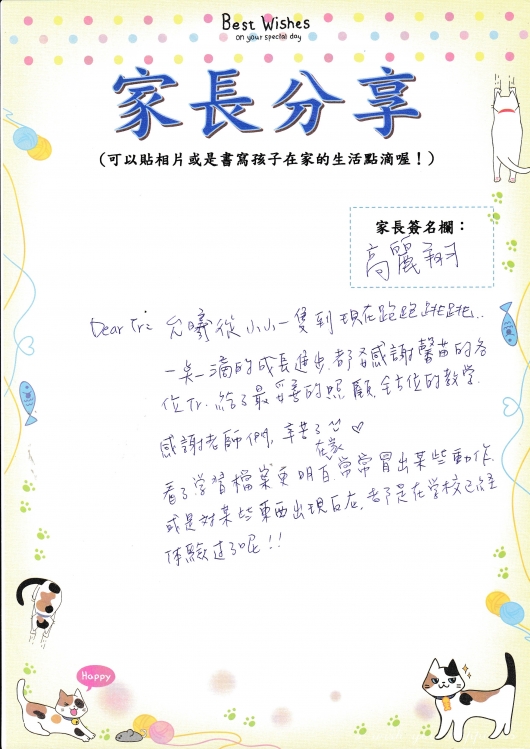 Best Wishes
on your special day
家長分享
(可以貼相片或是書寫孩子在家的生活點滴喔！)
家長簽名欄：
高麗翔
Dear Tr: 允曦從小小一隻到現在跑跑跳跳..
一點一滴的成長進步.都要感謝馨苗的各
位Tr. 給了最妥善的照顧,全方位的教学.
感謝老師們,辛苦了 ♡
看了学習檔案更明白,在家常常冒出某些動作.
或是對某些東西出現反应,都是在学校已經
体驗过了呢!!
Happy